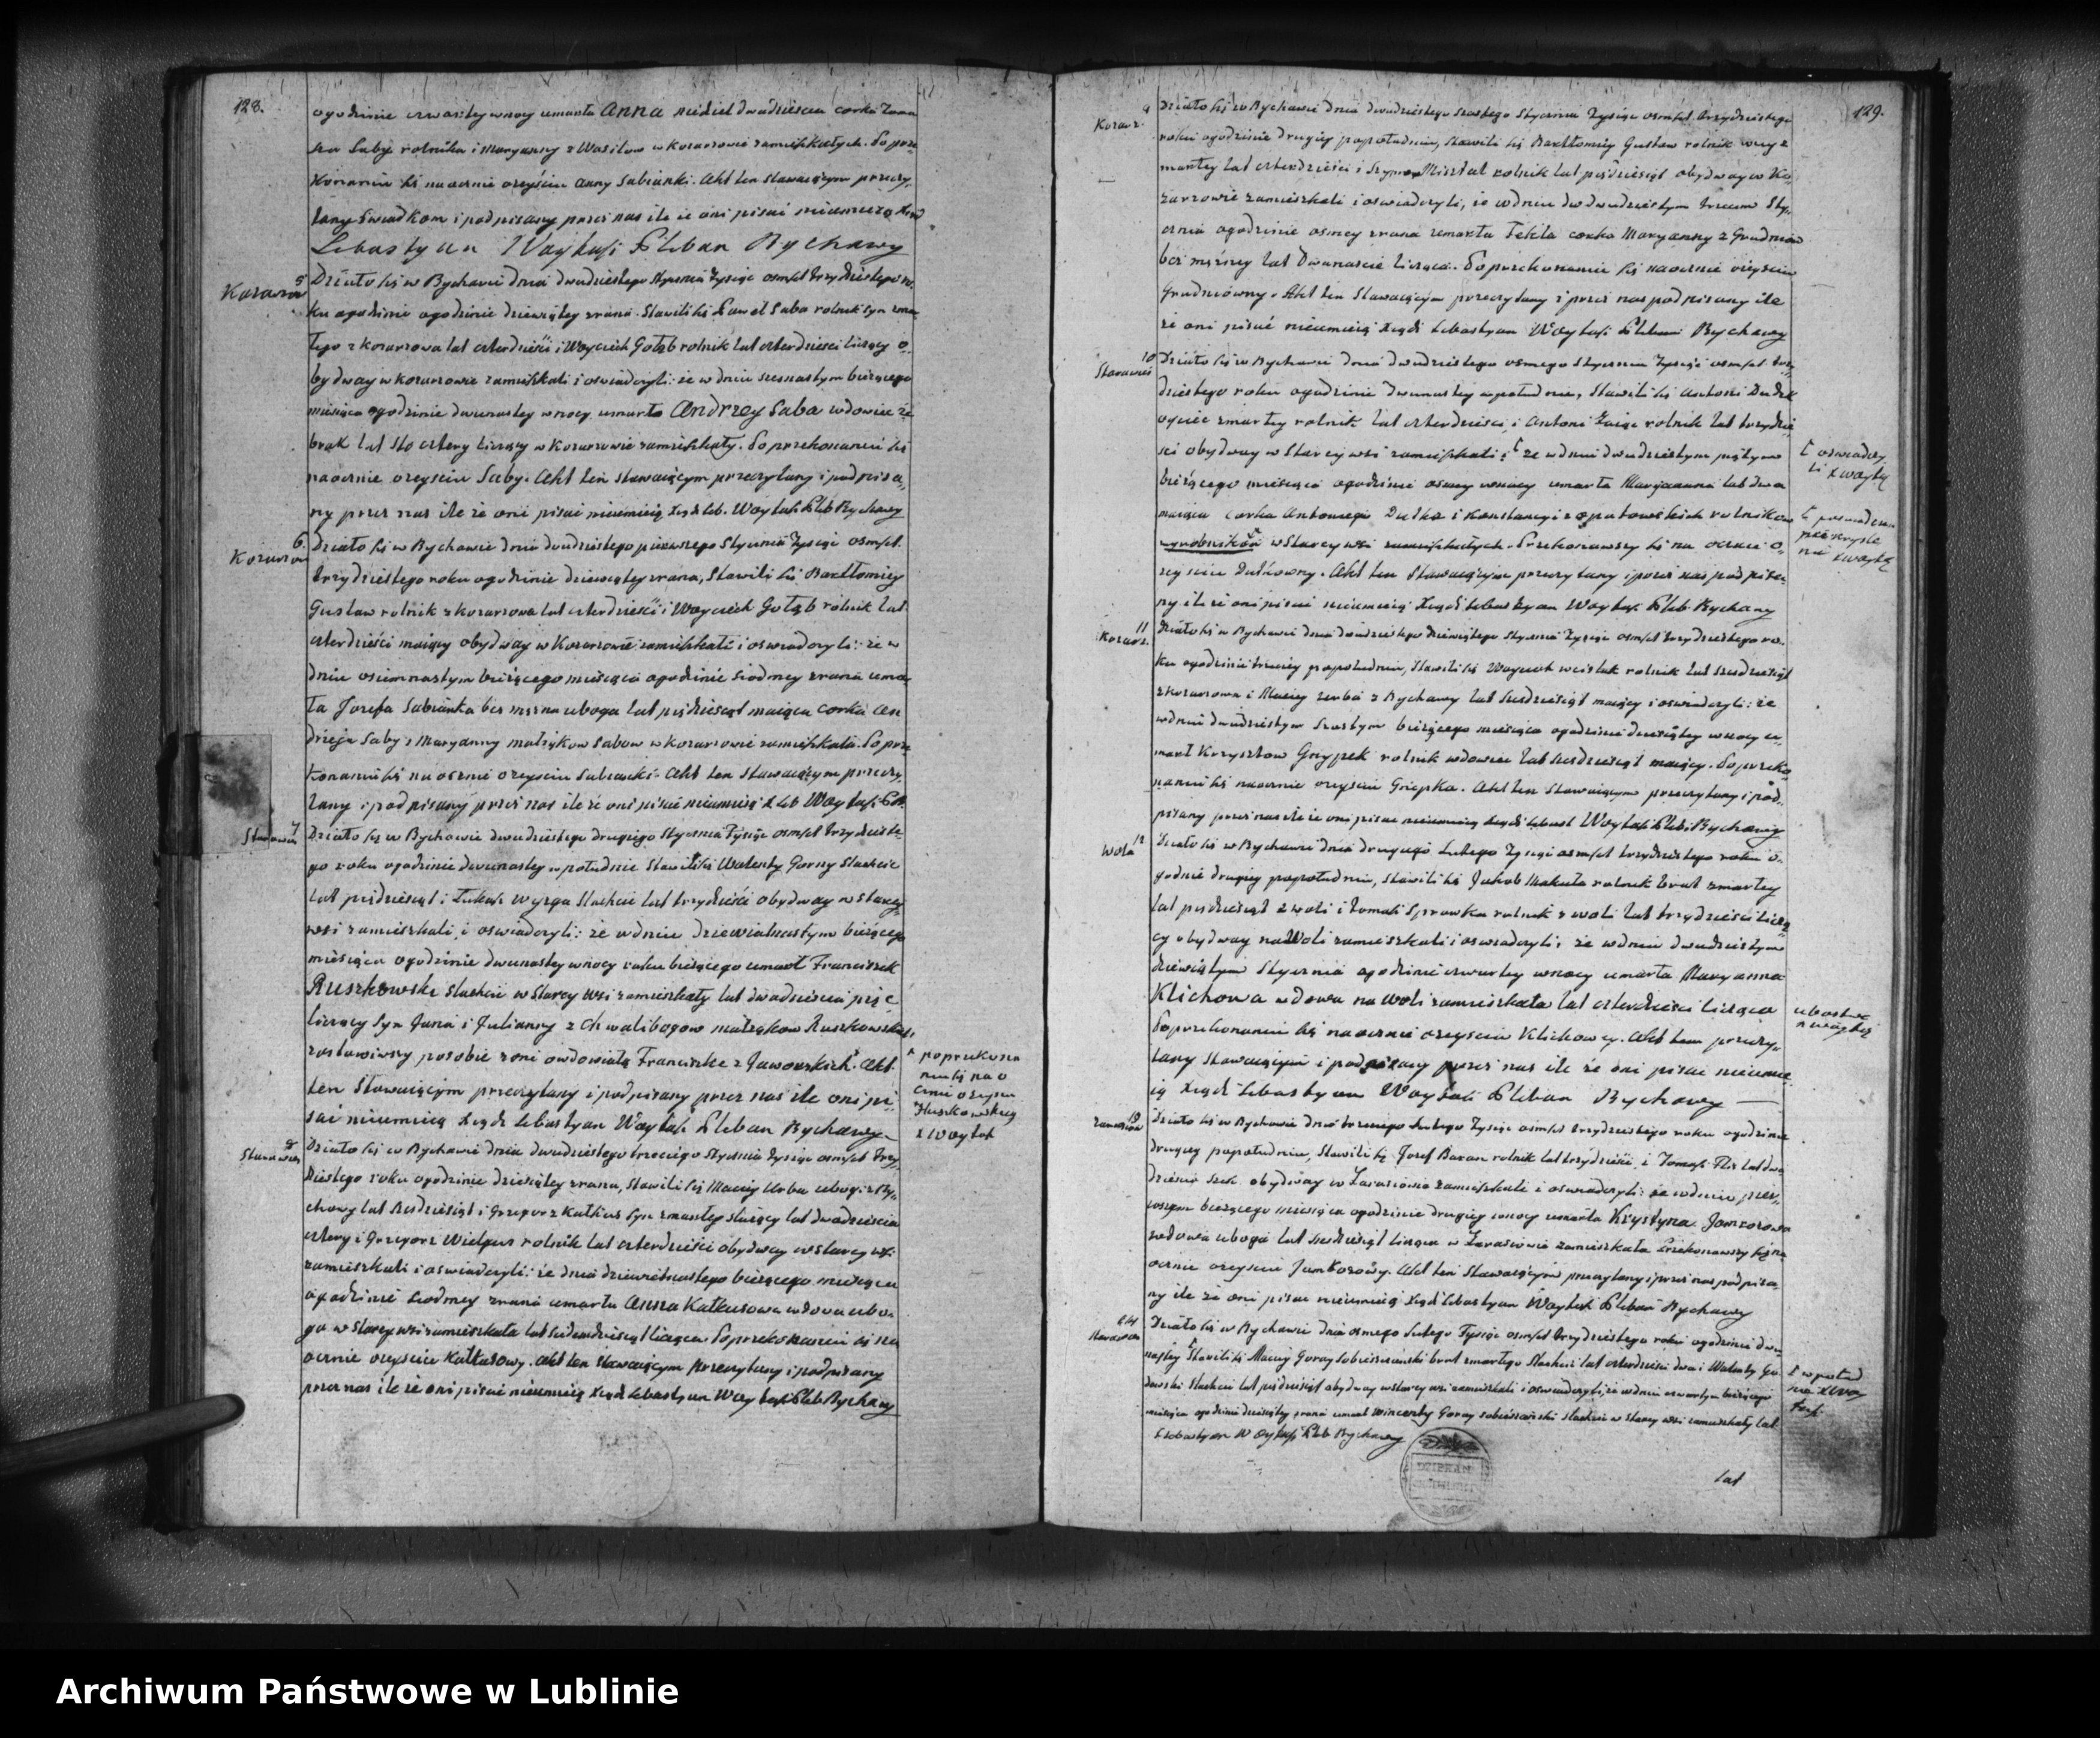 128.
ogodzinie czwartey wnocy umarła Anna niedziel dwadziescia corka
Saby rolnika i Maryanny z Wasilow w Kozarzowie zamieszkałych. Po prze
konaniu się naocznie o zeyściu Anny Sabianki. Akt ten stawaiącym przeczy,
tany świadkom i podpisany przez nas ile że oni pisać nieumieią Xiądz
Sebastyan Woytasz Pleban Bychawy
5
Kozarzow
Działo się w Bychawie dnia dwudziestego stycznia tysiąc osmset trzydziestego ro,
ku ogodzinie ogodzinie dziewiątey zrana. Stawili się Paweł Saba rolnik syn zmar
łego z Kozarzowa lat czterdzieści i Woyciech Gołąb rolnik lat czterdziesci liczący o,
bydway w Kozarzowie zamieszkali i oswiadczyli: że w dniu szesnastym bieżącego
miesiąca ogodzinie dwunastey wnocy umarł Andrzey Saba wdowiec że
brak lat sto cztery liczący w Kozarzowie zamieszkały. Po przekonaniu się
naocznie o zeysciu Saby. Akt ten stawaiącym przeczytany i podpisa,
ny przez nas ile że oni pisać nieumieią Xiądz Seb. Woytasz Pleb Bychawy
6.
Kozarzow
Działo się w Bychawie dnia dwudziestego pierwszego stycznia tysiąc osmset
trzydziestego roku ogodzinie dziewiątey zrana, Stawili się Bartłomiey
Gustaw rolnik z Kozarzowa lat czterdzieści i Woyciech Gołąb rolnik lat
czterdzieści maiący obydway w Kozarzowie zamieszkali i oswiadczyli: że w
dniu osiemnastym bieżącego miesiąca ogodzinie siodmey zrana umar
ła Jozefa Sabianka bez męzna uboga lat pięćdziesiąt maiąca corka An
drzeja Saby i Maryanny małżąkow Sabow w Kozarzowie zamieszkała. Po prze
konaniu się naocznie o zeysciu Sabianki. Akt ten stawaiącym przeczy,
tany i podpisany przez nas ile że oni pisać nieumieią X Seb Woytasz Pleb.
7
Starawieś
Działo się w Bychawie dwudziestego drugiego stycznia tysiąc osmset trzydzieste,
go roku ogodzinie dwunastey w południe Stawili się Walenty Gorny szlachcic
lat pięćdziesiąt i Łukasz Wyzga szlachcic lat trzydzieści obydway w starey
wsi zamieszkali i oswiadczyli: że w dniu dziewietnastym bieżącego
miesiąca ogodzinie dwunastey wnocy roku bieżącego umarł Franciszek
Ruszkowski szlachcic w Starey wsi zamieszkały lat dwadziescia pięć
liczący syn Jana i Julianny z Chwalibogow małżąkow Ruszkowskich,
zostawiwszy posobie żonę owdowiałą Franciszkę z Jaworskich. Akt
ten stawaiącym przeczytany i podpisany przez nas ile oni pi,
sać nieumieią Xiądz Sebastyan Woytasz Pleban Bychawy
poprzekona
niu się nao
cznie o zeysciu
Ruszkowskiego
X Woytasz
8
Starawieś
Działo się w Bychawie dnia dwudziestego trzeciego stycznia tysiąc osmset trzy,
dziestego roku ogodzinie dziesiątey zrana, Stawili się Maciey Urba ubogi z By,
chawy lat sześdziesiąt i Grzegorz Kałkus syn zmarłey służący lat dwadziescia
cztery i Grzegorz Wielgus rolnik lat czterdzieści obydway w starey wsi
zamieszkali i oswiadczyli: że dnia dziewietnastego bieżącego miesiąca
ogodzinie siodmey zrana umarła Anna Kałkusowa wdowa ubo,
ga w Starey wsi zamieszkała lat siedemdziesiąt licząca. Po przekonaniu się na
ocznie o zeysciu Kałkusowy. Akt ten stawaiącym przeczytany i podpisany
przez nas ile że oni pisać nieumieią Xiądz Sebastyan Woytasz Pleb Bychawy
129.
9
Kozarz.
Działo się w Bychawie dnia dwudziestego szostego stycznia tysiąc osmset trzydziestego
roku ogodzinie drugiey popołudniu, stawili się Bartłomiey Gustaw rolnik
zmarłey lat czterdzieści i Szymon Misztal rolnik lat pięćdziesiąt obydway w Ko,
zarzowie zamieszkali i oswiadczyli, że w dniu dwudziestym trzecim sty,
cznia ogodzinie osmey zrana zmarła Tekla corka Maryanny z Grudniow
bez mężney lat dwanaście licząca. Po przekonaniu się naocznie o zeysciu
Grudniowny. Akt ten stawaiącym przeczytany i przez nas podpisany ile
że oni pisać nieumieią Xiądz Sebastyan Woytasz Pleban Bychawy
10
Starawieś
Działo się w Bychawie dnia dwudziestego osmego stycznia tysiąc osmset trzy,
dziestego roku ogodzinie dwunastey wpołudnie, stawili się Antoni Dudek
oyciec zmarłey rolnik lat czterdzieści i Antoni Zając rolnik lat trzydzie
sci obydway w Starey wsi zamieszkali i że w dniu dwudziestym piątym
bieżącego miesiąca ogodzinie osmey wnocy umarła Maryanna lat dwa
maiąca corka Antoniego Dudka i Konstancyi z Opatowskich rolnikow
wyrobnikow w Starey wsi zamieszkałych. Przekonawszy się na ocznie o
zeysciu Dudkowny. Akt ten stawaiącym przeczytany i przez nas podpisa,
ny ile że oni pisać nieumieią Xiądz Sebastyan Woytasz Pleb. Bychawy
oswiadczy
li X Woytasz
X Woytasz
11
Kozarz.
Działo się w Bychawie dnia dwudziestego dziewiątego stycznia tysiąc osmset trzydziestego ro,
ku ogodzinie trzeciey popołudniu, stawili się Woyciech Wcisłak rolnik lat sześdziesiąt
z Kozarzowa i Maciey Urba z Bychawy lat sześdziesiąt maiący i oswiadczyli: że
w dniu dwudziestym szostym bieżącego miesiąca ogodzinie dziesiątey wnocy u,
marł Krzysztow Gnypek rolnik wdowiec lat sześdziesiąt maiący. Po przeko
naniu się naocznie o zeysciu Gnypka. Akt ten stawaiącym przeczytany i pod,
pisany przez nas ile że oni pisać nieumieią Xiądz Sebast Woytasz Pleb Bychawy
12
Wola
Działo się w Bychawie dnia drugiego Lutego tysiąc osmset trzydziestego roku o,
godzinie drugiey popołudniu, stawili się Jakob Makuła rolnik brat zmarłey
lat pięćdziesiąt z Woli i Tomasz Sprawka rolnik z Woli lat trzydzieści liczą
cy obydway na Woli zamieszkali i oswiadczyli, że w dniu dwudziestym
dziewiątym stycznia ogodzinie czwartey wnocy umarła Maryanna
Klichowa wdowa na Woli zamieszkała lat czterdzieści licząca
Po przekonaniu się naocznie o zeysciu Klichowy. Akt ten przeczy,
tany stawaiącym i podpisany przez nas ile że oni pisać nieumie,
ią Xiądz Sebastyan Woytasz Pleban Bychawy
13
Działo się w Bychawie dnia trzeciego Lutego tysiąc osmset trzydziestego roku ogodzinie
drugiey popołudniu, Stawili się Jozef Baran rolnik lat trzydzieści, i Tomasz Flis lat dwa
dzieścia obydway w Zaraszowie zamieszkali i oswiadczyli: że w dniu pier,
wszym bieżącego miesiąca ogodzinie drugiey wnocy umarła Krystyna Jamrozowa
wdowa uboga lat sześdziesiąt licząca w Zaraszowie zamieszkała Przekonawszy się na
ocznie o zeysciu Jamrozowy. Akt ten stawaiącym przeczytany i przez nas podpisa,
ny ile że oni pisać nieumieią Xiądz Sebastyan Woytasz Pleban Bychawy
14
Starawieś
Działo się w Bychawie dnia osmego Lutego tysiąc osmset trzydziestego roku ogodzinie dwu
nastey Stawili się Maciey Goray Sobieszczański brat zmarłego szlachcic lat czterdzieści dwa i Walenty
szlachcic lat pięćdziesiąt obydway w starey wsi zamieszkali i oswiadczyli, że w dniu czwartym bieżącego
miesiąca ogodzinie dziesiątey zrana umarł Wincenty Goray Sobieszczański szlachcic w Starey wsi zamieszkały lat
Sebastyan Woytasz Pleb Bychawy
w połud
nie X Woy
tasz.
lat
Archiwum Państwowe w Lublinie